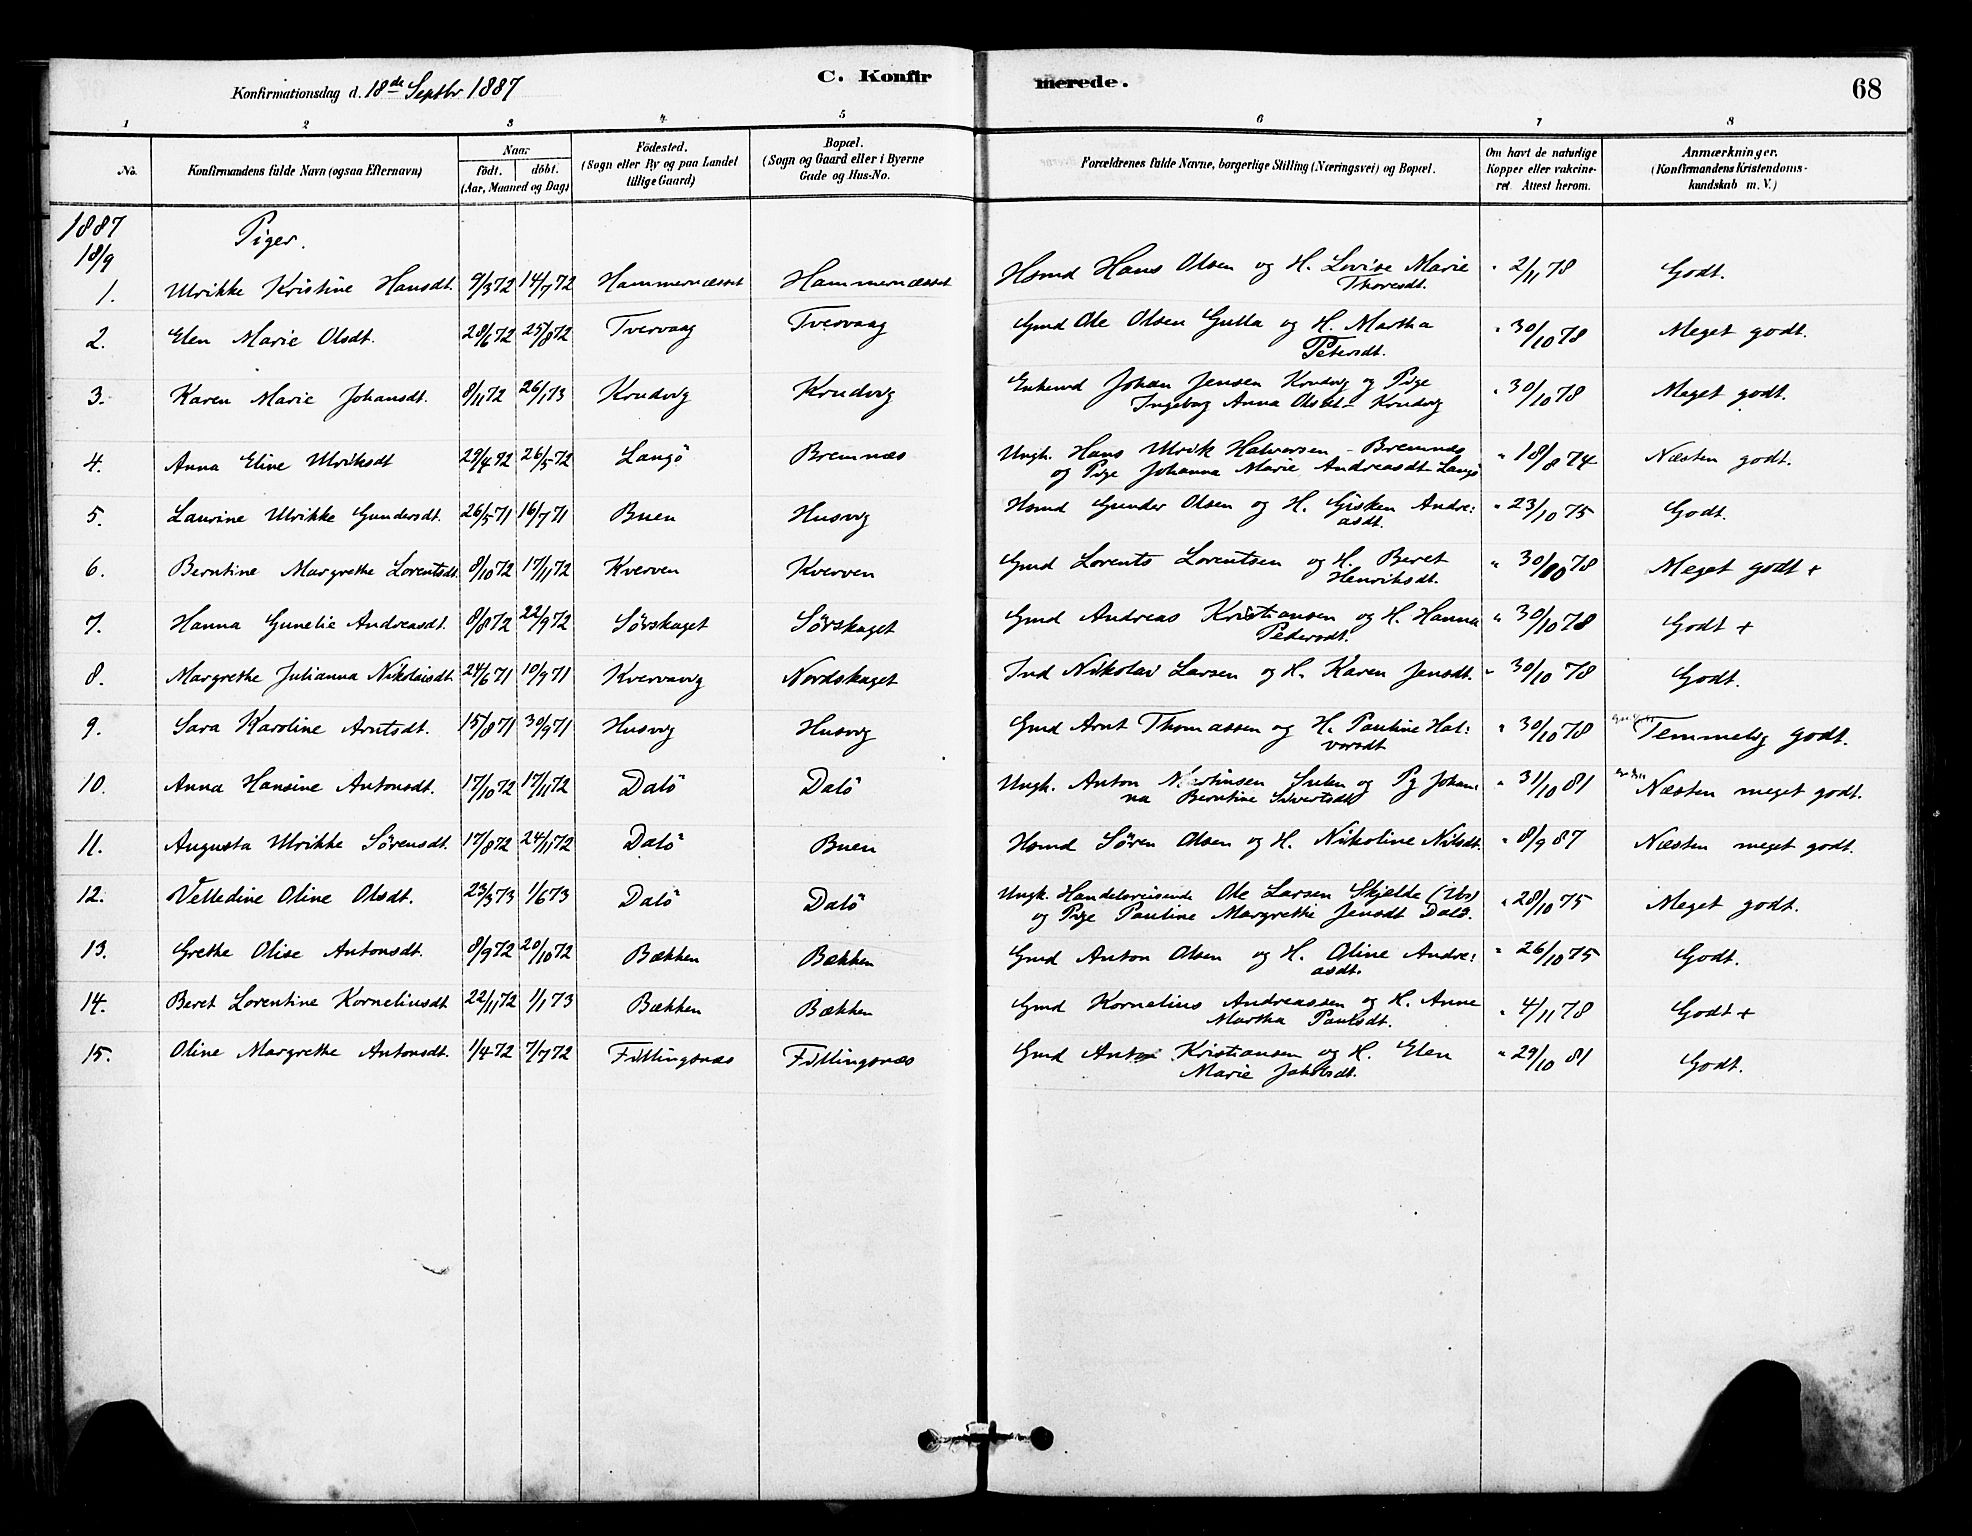 Konfirmationsdag d. 18de Septbr 1887
C. Konfirmerede.
68
1 2 3 4 5 6 7 8
No. Konfirmandens fulde Navn (ogsaa Efternavn) Naar födt. döbt. (Aar, Maaned og Dag) Födested. (Sogn eller By og paa Landet tillige Gaard) Bopæl. (Sogn og Gaard eller i Byerne Gade og Hus-No. Forældrenes fulde Navne, borgerlige Stilling (Næringsvei) og Bopæl. Om havt de naturlige Kopper eller vakcineret. Attest herom. Anmærkninger. (Konfirmandens Kristendomskundskab m. V.)
1887 Piger.
18/9
1. Ulrikke Kristine Hansdt. 9/3 72 14/7 72 Hammernæsset Hammernæsset Hsmd Hans Olsen og H. Lovise Marie Thoresdt. " 2/11 78 Godt.
2. Elen Marie Olsdt. 28/6 72 25/8 72 Tvervaag Tvervaag Gmd Ole Olsen Gulla og H. Martha Petersdt. " 30/10 78 Meget godt.
3. Karen Marie Johansdt. 8/11 72 26/1 73 Knudvig Knudvig Enkemd Johan Jensen Knudvig og Pige Ingeborg Anna Olsdt - Knudvig " 30/10 78 Meget godt.
4. Anna Eline Ulriksdt 29/4 72 26/5 72 Langö Bremnæs Ungk. Hans Ulrik Halvorsen - Bremnæs og Pige Johanna Marie Andreasdt Langö " 18/8 74 Næsten godt.
5. Laurine Ulrikke Gundersdt. 26/5 71 16/7 71 Buen Husvig Hsmd Gunder Olsen og H. Gisken Andre:asdt. " 23/10 75 Godt.
6. Berntine Margrethe Lorentsdt. 8/10 72 17/11 72 Kverven Kverven Gmd Lorents Lorentsen og H. Beret Henriksdt. " 30/10 78 Meget godt +
7. Hanna Gunelie Andreasdt. 8/8 72 22/9 72 Sörskaget Sörskaget Gmd Andreas Kristiansen og H. Hanna Pedersdt. " 30/10 78 Godt +
8. Margrethe Julianna Nikolaisdt. 24/6 71 10/9 71 Kvervavig Nordskaget Ind Nikolai Larsen og H. Karen Jensdt. " 30/10 78 Godt.
9. Sara Karoline Arntsdt. 15/8 71 30/9 71 Husvig Husvig Gmd Arnt Thomassen og H. Pauline Hal:vorsdt " 30/10 78 Temmelig godt.
10. Anna Hansine Antonsdt. 17/10 72 17/11 72 Dalö Dalö Ungk. Anton Martinsen og Pg Johan:na Berntine Sivertsdt " 31/10 81 Næsten meget godt.
11. Augusta Ulrikke Sörensdt. 17/8 72 24/11 72 Dalö Buen Hsmd Sören Olsen og H. Nikoline Nilsdt. " 8/9 87 Næsten meget godt.
12. Velledine Oline Olsdt. 23/3 73 1/6 73 Dalö Dalö Ungk. Handelsreisende Ole Larsen Skjelde og Pige Pauline Margrethe Jensdt Dalö. " 28/10 75 Meget godt.
13. Grethe Olise Antonsdt. 8/9 72 20/10 72 Bækken Bækken Gmd Anton Olsen og H. Oline Andre:asdt. " 26/10 75 Godt.
14. Beret Lorentine Korneliusdt 22/11 72 1/1 73 Bækken Bækken Gmd Kornelius Andreassen og H. Anne Martha Paulsdt. " 4/11 78 Godt +
15. Oline Margrethe Antonsdt. 1/4 72 7/7 72 Fillingsnæs Fillingsnæs Gmd Anton Kristiansen og H. Elen Marie Jakobsdt. " 29/10 81 Godt.